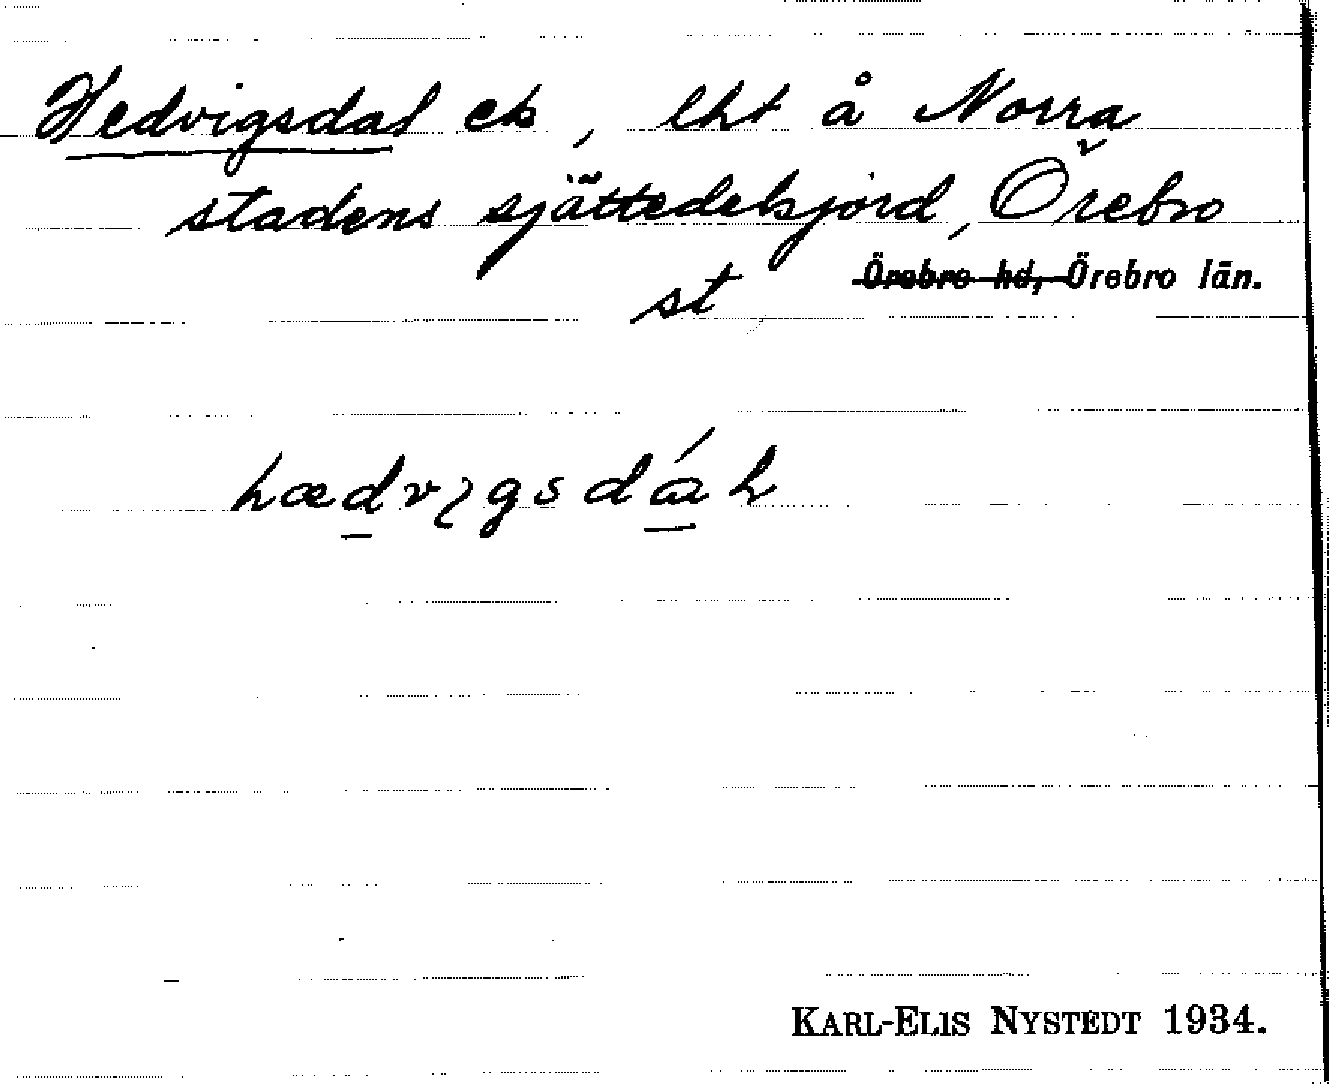 Hedvigsdal ek, lht å Norra
stadens sjättedelsjord, Örebro
st
Örebro hd, Örebro län.
KARL-ELIS NYSTEDT 1934.